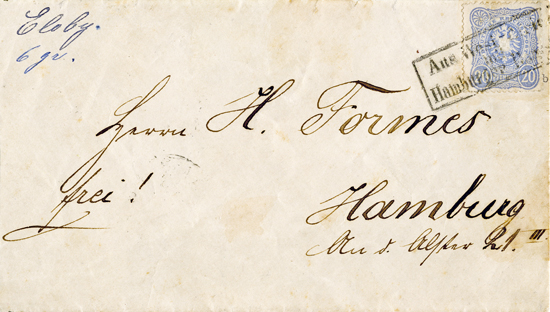 Eloby.
6 gr.
Aus West
Hamburg
20
Herrn H. Formes
frei!
Hamburg
An d. Alster 21 III.